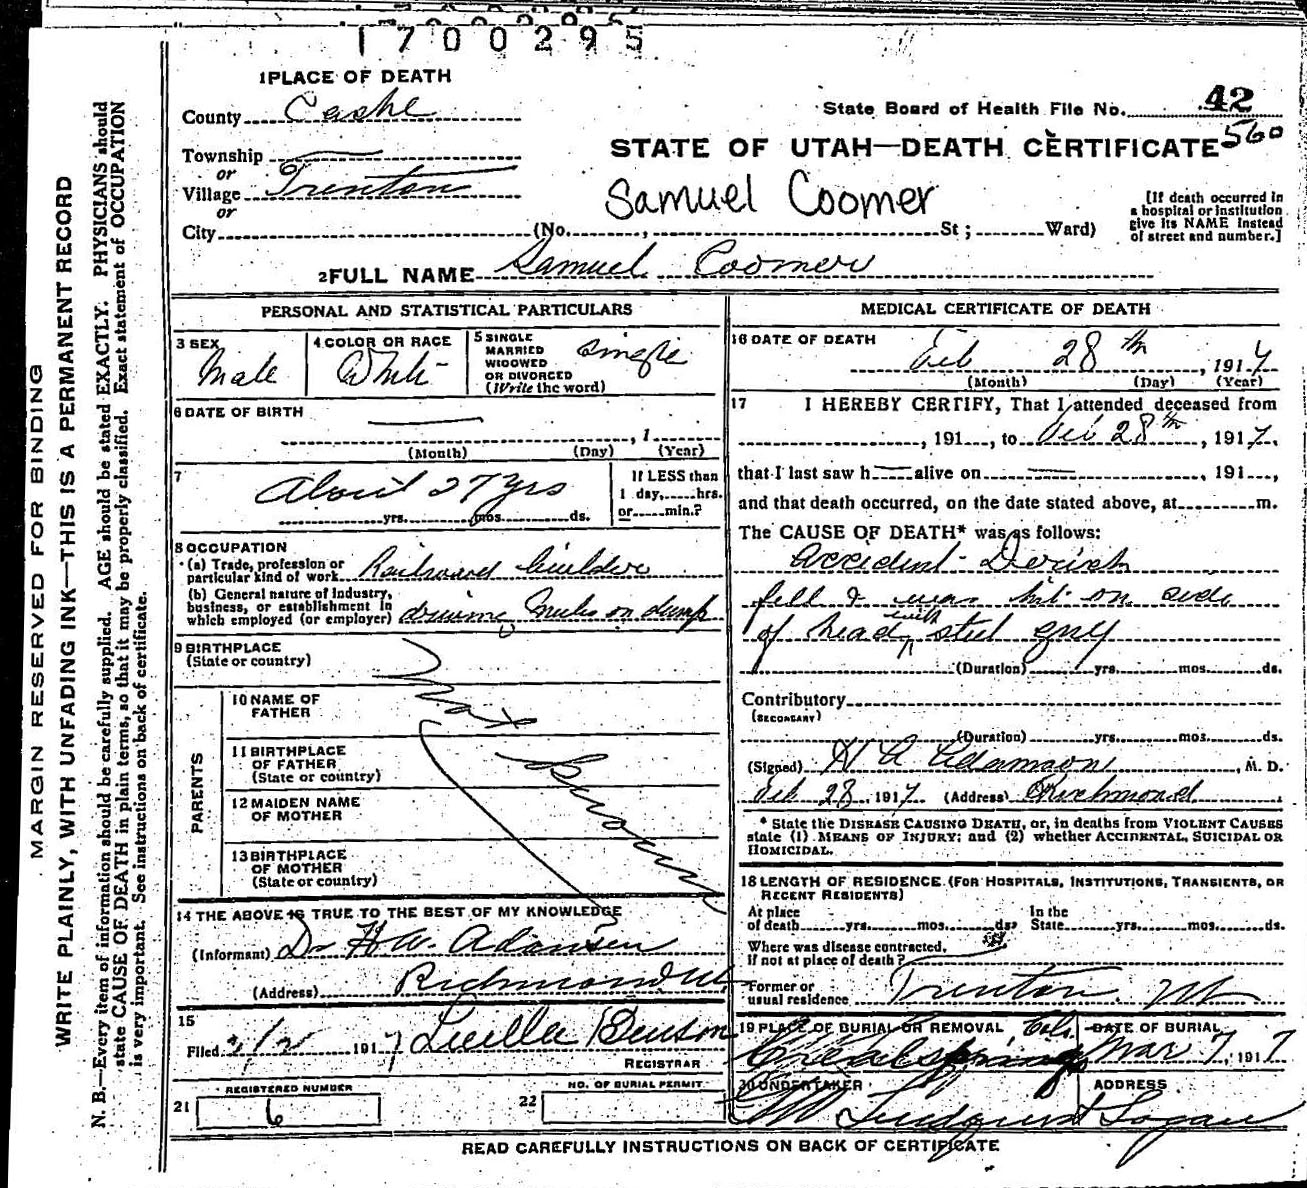 1700295
1 PLACE OF DEATH
County Cache
State Board of Health File No. 42
560
Township
or
Village Trenton
or
City (No. , St ; Ward)
STATE OF UTAH—DEATH CERTIFICATE
Samuel Coomer
[If death occurred in
a hospital or institution
give its NAME instead
of street and number.]
2 FULL NAME Samuel Coomer
PERSONAL AND STATISTICAL PARTICULARS
3 SEX
Male
4 COLOR OR RACE
White
5 SINGLE
MARRIED
WIDOWED
OR DIVORCED
(Write the word)
Single
6 DATE OF BIRTH
, 1
(Month) (Day) (Year)
7
About 27 yrs
yrs. mos. ds.
If LESS than
1 day, hrs.
or min.?
8 OCCUPATION
(a) Trade, profession or
particular kind of work Railroad builder
(b) General nature of industry,
business, or establishment in
which employed (or employer) driving mules on dump
9 BIRTHPLACE
(State or country)
PARENTS
10 NAME OF
FATHER
11 BIRTHPLACE
OF FATHER
(State or country)
12 MAIDEN NAME
OF MOTHER
13 BIRTHPLACE
OF MOTHER
(State or country)
Not
14 THE ABOVE IS TRUE TO THE BEST OF MY KNOWLEDGE
(Informant) Dr H. W. Adamson
(Address) Richmond Ut
15
Filed 3/2 1917 Luella Benson
REGISTRAR
REGISTERED NUMBER
21 6
NO. OF BURIAL PERMIT
22
MEDICAL CERTIFICATE OF DEATH
16 DATE OF DEATH
Feb 28th , 1917
(Month) (Day) (Year)
17 I HEREBY CERTIFY, That I attended deceased from
, 191 , to Feb 28th , 1917,
that I last saw h alive on , 191 ,
and that death occurred, on the date stated above, at m.
The CAUSE OF DEATH* was as follows:
Accident- Derick
fell & was hit on side
of head with steel guy
(Duration) yrs. mos. ds.
Contributory
(SECONDARY)
(Duration) yrs. mos. ds.
(Signed) Adamson , M. D.
Feb 28 1917 (Address) Richmond
* State the DISEASE CAUSING DEATH, or, in deaths from VIOLENT CAUSES
state (1) MEANS OF INJURY; and (2) whether ACCIDENTAL, SUICIDAL OR
HOMICIDAL.
18 LENGTH OF RESIDENCE (FOR HOSPITALS, INSTITUTIONS, TRANSIENTS, OR
RECENT RESIDENTS)
At place
of death yrs. mos. ds. In the
State yrs. mos. ds.
Where was disease contracted,
if not at place of death?
Former or
usual residence Trenton Ut
19 PLACE OF BURIAL OR REMOVAL
Colo
DATE OF BURIAL
Mar 7, 1917
20 UNDERTAKER
Lindquist
ADDRESS
Logan
READ CAREFULLY INSTRUCTIONS ON BACK OF CERTIFICATE
MARGIN RESERVED FOR BINDING
WRITE PLAINLY, WITH UNFADING INK—THIS IS A PERMANENT RECORD
N. B.—Every item of information should be carefully supplied. AGE should be stated EXACTLY. PHYSICIANS should
state CAUSE OF DEATH in plain terms, so that it may be properly classified. Exact statement of OCCUPATION
is very important. See instructions on back of certificate.